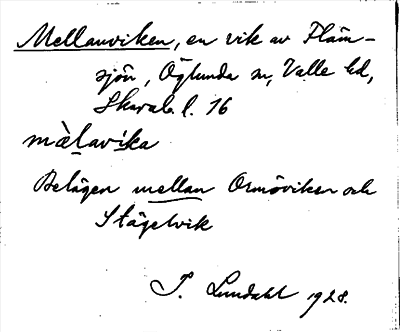 Mellanviken, en vik av Fläm-
sjön, Öglunda sn, Valle hd,
Skarab. l. 16
mὰlavika
Belägen mellan Ormöviken och
Stägelvik
J. Lundahl 1928.